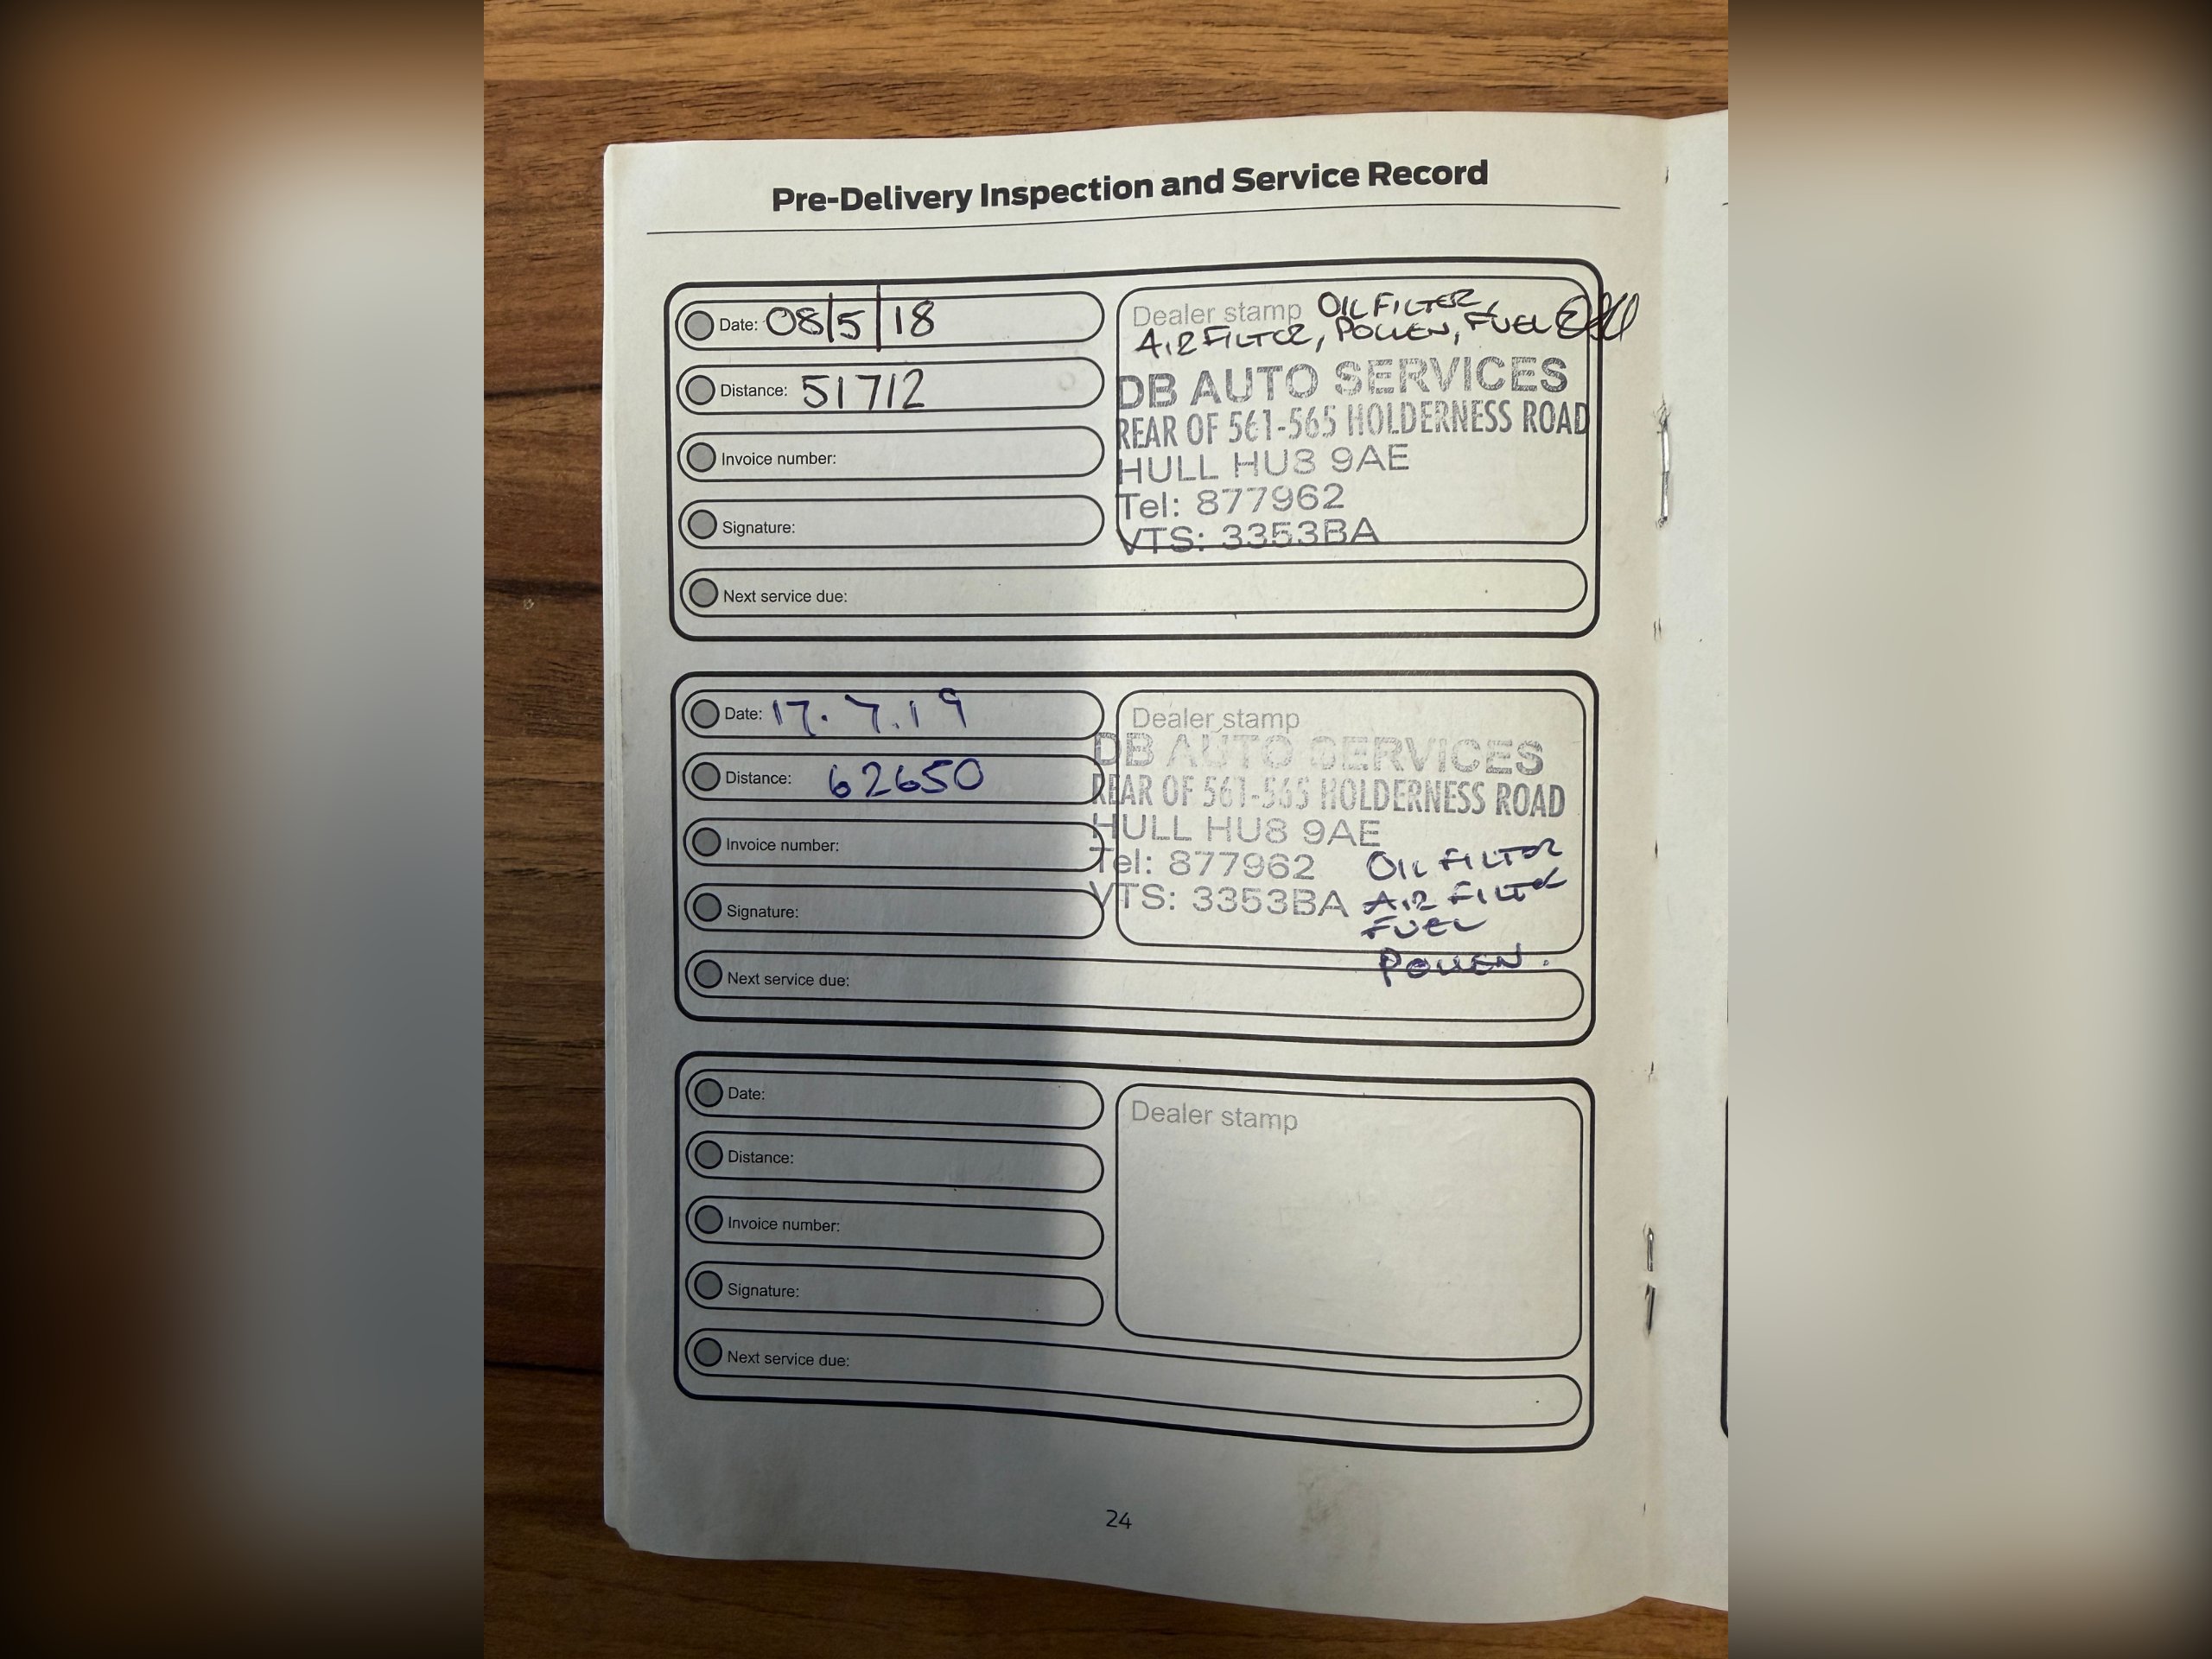 Pre-Delivery Inspection and Service Record
Date: 08/5/18
Distance: 51712
Invoice number:
Signature:
Next service due:
Dealer stamp OIL FILTER,
AIR FILTER, POLLEN, FUEL
DB AUTO SERVICES
REAR OF 561-565 HOLDERNESS ROAD
HULL HU8 9AE
Tel: 877962
VTS: 3353BA
Date: 17.7.19
Distance: 62650
Invoice number:
Signature:
Next service due:
Dealer stamp
DB AUTO SERVICES
REAR OF 561-565 HOLDERNESS ROAD
HULL HU8 9AE
Tel: 877962
VTS: 3353BA
OIL FILTER
AIR FILTER
FUEL
POLLEN.
Date:
Distance:
Invoice number:
Signature:
Next service due:
Dealer stamp
24